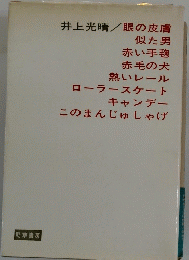 井上光晴/眼の皮膚
似た男
赤い手毬
赤毛の犬
熱いレール
ローラースケート
キャンデー
このまんじゅしゃげ
勁草書房